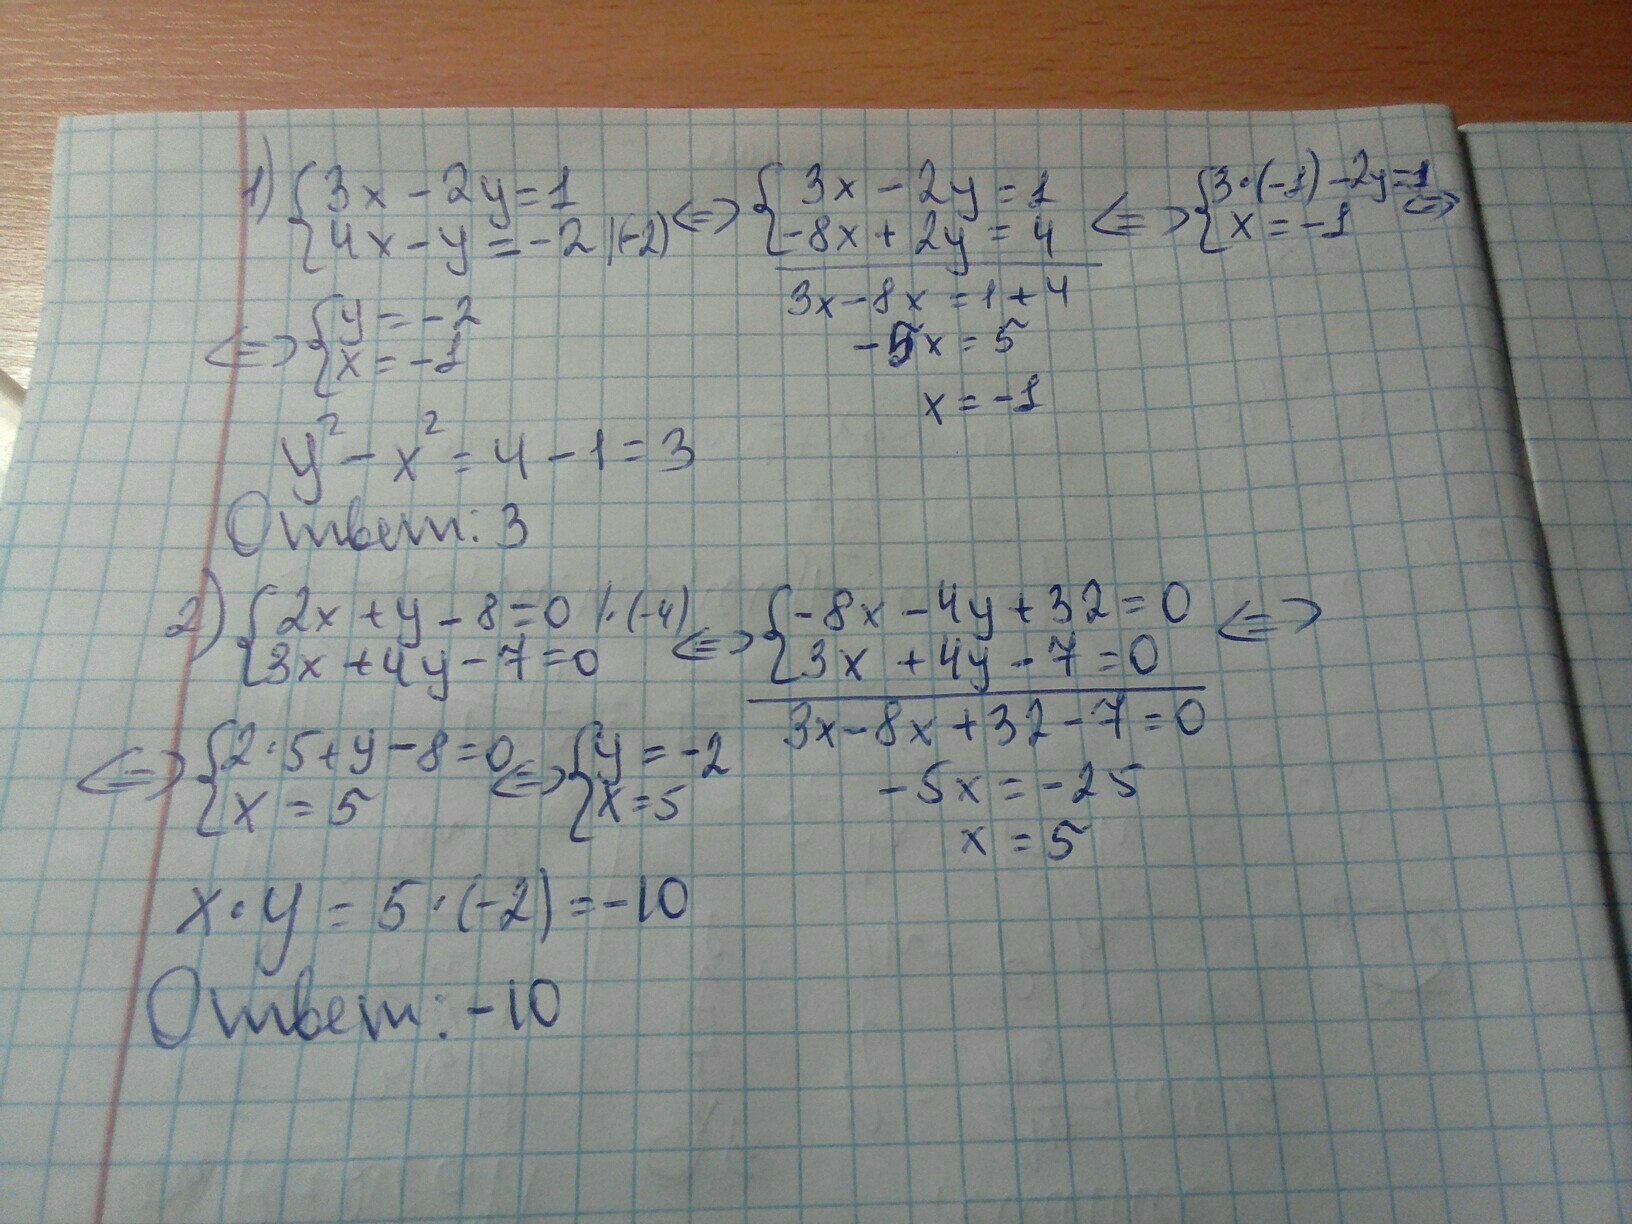 1) { 3x - 2y = 1
4x - y = -2 |(-2) <=> { 3x - 2y = 1
-8x + 2y = 4 <=> { 3·(-1) - 2y = 1
x = -1 <=>
3x - 8x = 1 + 4
-5x = 5
x = -1
<=> { y = -2
x = -1
y² - x² = 4 - 1 = 3
Ответ: 3
2) { 2x + y - 8 = 0 |·(-4)
3x + 4y - 7 = 0 <=> { -8x - 4y + 32 = 0
3x + 4y - 7 = 0 <=>
3x - 8x + 32 - 7 = 0
-5x = -25
x = 5
<=> { 2·5 + y - 8 = 0
x = 5 <=> { y = -2
x = 5
x·y = 5·(-2) = -10
Ответ: -10